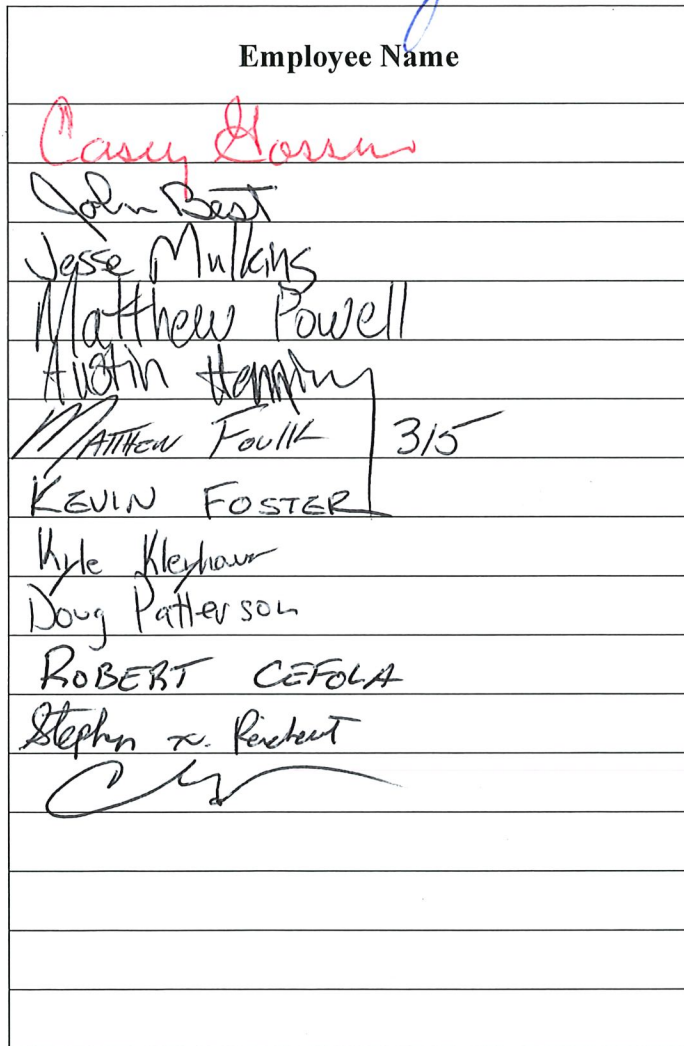 Employee Name
Casey
John Best
Jesse Mulkins
Matthew Powell
Austin
MATTHEW FOULK 3/5
KEVIN FOSTER
Kyle
Doug Patterson
ROBERT CEFOLA
Stephen